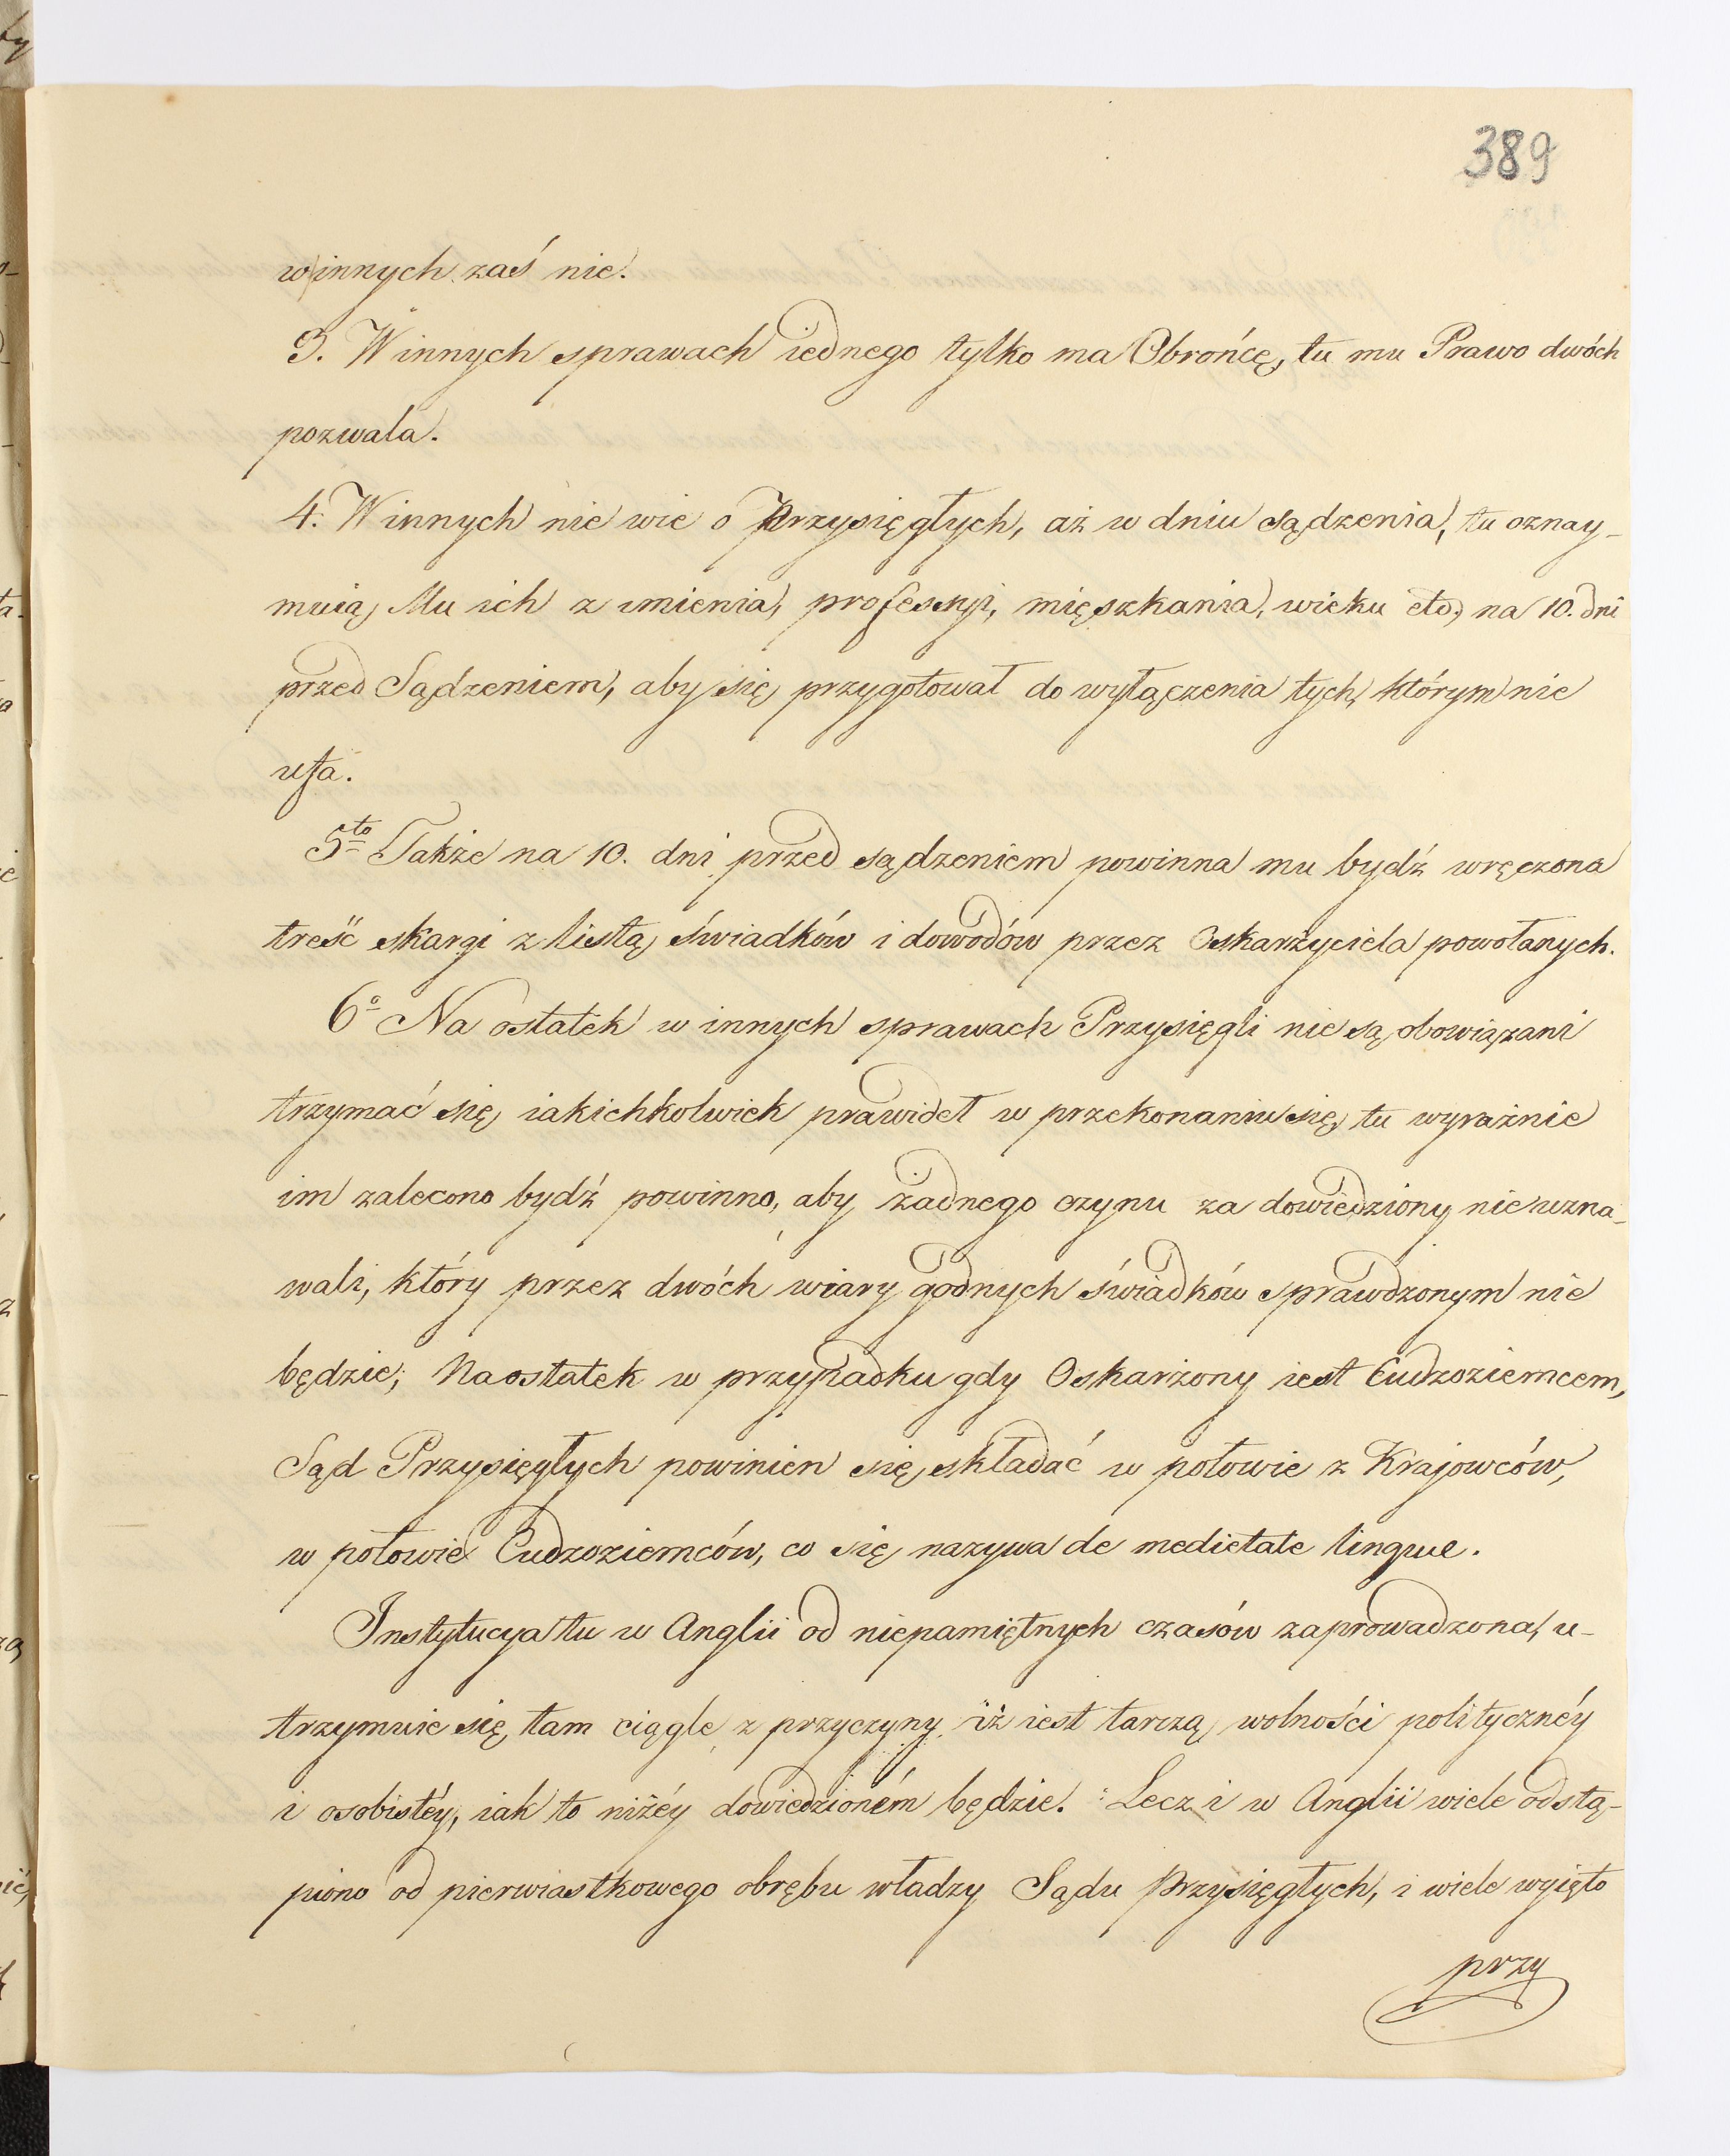 389
w innych zaś nie.
3. W innych sprawach iednego tylko ma Obrońcę, tu mu Prawo dwóch
pozwala.
4. W innych nie wie o Przysięgłych, aż w dniu sądzenia, tu oznay-
muią Mu ich z imienia, professyi, mięszkania, wieku etc, na 10. dni
przed Sądzeniem, aby się przygotował do wyłączenia tych, którym nie
ufa.
5to Także na 10. dni przed sądzeniem powinna mu bydź wręczona
treść skargi z listą świadków i dowodów przez Oskarżyciela powołanych.
6o Na ostatek w innych sprawach Przysięgli nie są obowiązani
trzymać się iakichkolwiek prawideł w przekonaniu się, tu wyraźnie
im zalecono bydź powinno, aby żadnego czynu za dowiedziony nie uzna-
wali, który przez dwóch wiary godnych świadków sprawdzonym nie
będzie; Na ostatek w przypadku gdy Oskarżony iest Cudzoziemcem,
Sąd Przysięgłych powinien się składać w połowie z Krajowców,
w połowie Cudzoziemców, co się nazywa de medietate lingue.
Instytucya tu w Anglii od niepamiętnych czasów zaprowadzona, u-
trzymuie się tam ciągle z przyczyny iż iest tarczą wolności polityczney
i osobistéy, iak to niżéy dowiedzioném będzie. Lecz i w Anglii wiele odstą-
piono od pierwiastkowego obrębu władzy Sądu Przysięgłych, i wiele wyięto
przy